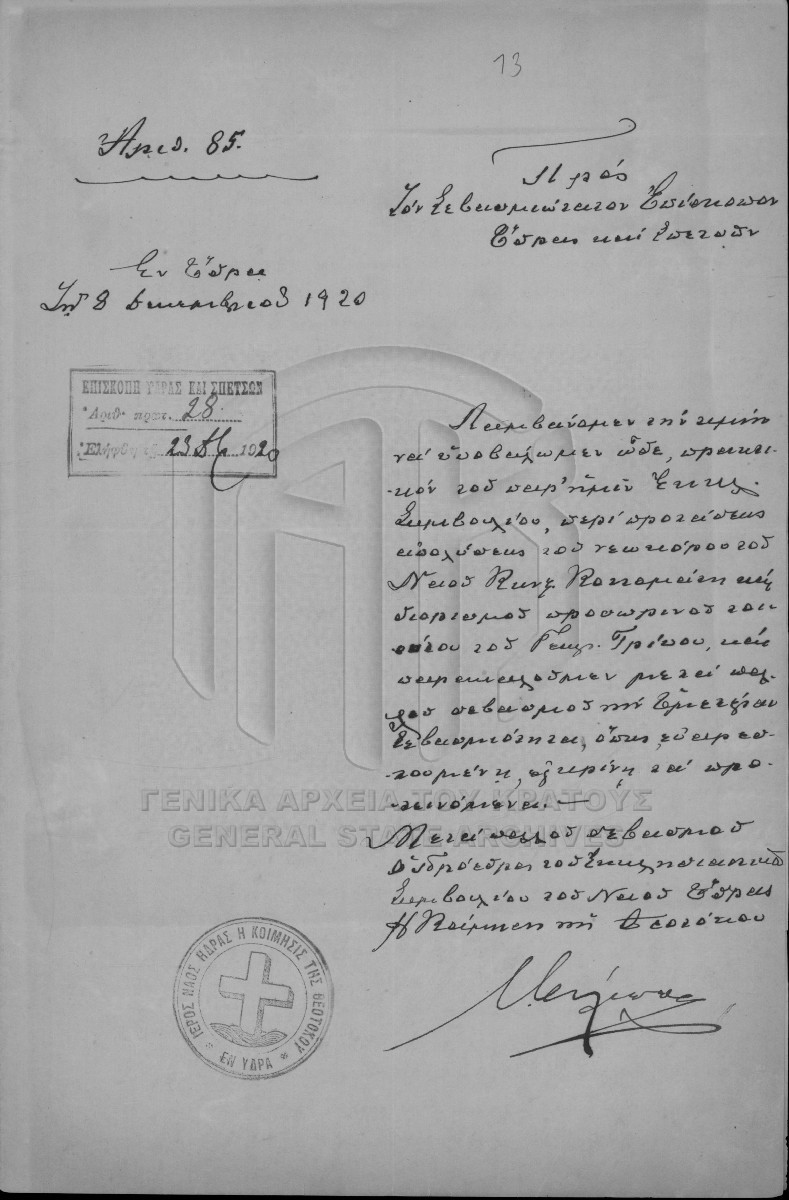 13
Ἀριθ. 85.
Πρός
Τόν Σεβασμιώτατον Ἐπίσκοπον
Ὕδρας καί Σπετσῶν
Ἐν Ὕδρᾳ
Τῇ 8 Δεκεμβρίου 1920
ΕΠΙΣΚΟΠΗ ΥΔΡΑΣ ΚΑΙ ΣΠΕΤΣΩΝ
Ἀριθ. πρωτ. 28
Ἐλήφθη τῇ 23 1920
Λαμβάνομεν τήν τιμήν
νά ὑποβάλωμεν ὧδε, πρακτι-
-κόν τοῦ παρ' ἡμῖν Ἐκκλ.
Συμβουλίου, περί προτάσεως
ἀπολύσεως τοῦ νεωκόρου τοῦ
Ναοῦ καί
διορισμοῦ προσωρινοῦ τοι-
ούτου τοῦ Γεωρ. Γρίπου, καί
παρακαλοῦμεν μετά πολ-
λοῦ σεβασμοῦ τήν Ὑμετέραν
Σεβασμιότητα, ὅπως, εὐαρεσ-
-τουμένη, ἐγκρίνῃ τά προ-
-τεινόμενα.—
Μετά πολλοῦ σεβασμοῦ
Ὁ Πρόεδρος τοῦ Ἐκκλησιαστικοῦ
Συμβουλίου τοῦ Ναοῦ Ὕδρας
Η Κοίμησις τῆς Θεοτόκου
ΙΕΡΟΣ ΝΑΟΣ ΥΔΡΑΣ Η ΚΟΙΜΗΣΙΣ ΤΗΣ ΘΕΟΤΟΚΟΥ
* ΕΝ ΥΔΡΑ *
ΓΕΝΙΚΑ ΑΡΧΕΙΑ ΤΟΥ ΚΡΑΤΟΥΣ
GENERAL STATE ARCHIVES